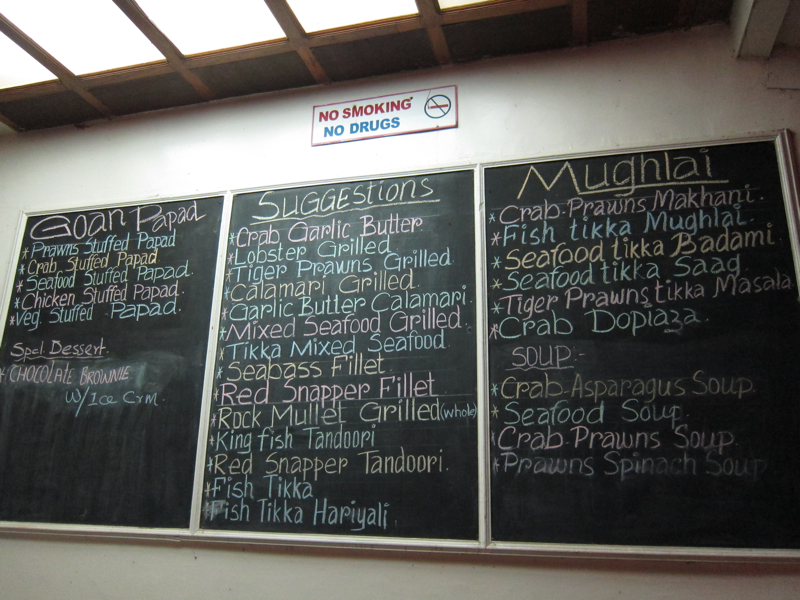 NO SMOKING
NO DRUGS
Goan Papad
* Prawns Stuffed Papad
* Crab Stuffed Papad
* Seafood Stuffed Papad.
* Chicken Stuffed Papad.
* Veg. Stuffed Papad.
Spel. Dessert.
* CHOCOLATE BROWNIE
W/ Ice Crm.
SUGGEStiONS
* Crab Garlic Butter
* Lobster Grilled
* Tiger Prawns Grilled.
* Calamari Grilled.
* Garlic Butter Calamari.
* Mixed Seafood Grilled.
* Tikka Mixed Seafood.
* Seabass Fillet
* Red Snapper Fillet
* Rock Mullet Grilled (whole)
* King fish Tandoori
* Red Snapper Tandoori.
* Fish Tikka
* Fish Tikka Hariyali
Mughlai
* Crab-Prawns Makhani.
* Fish tikka Mughlai.
* Seafood tikka Badami.
* Seafood tikka Saag
* Tiger Prawns tikka Masala
* Crab Dopiaza
SOUP:-
* Crab-Asparagus Soup.
* Seafood Soup.
* Crab-Prawns Soup.
* Prawns Spinach Soup